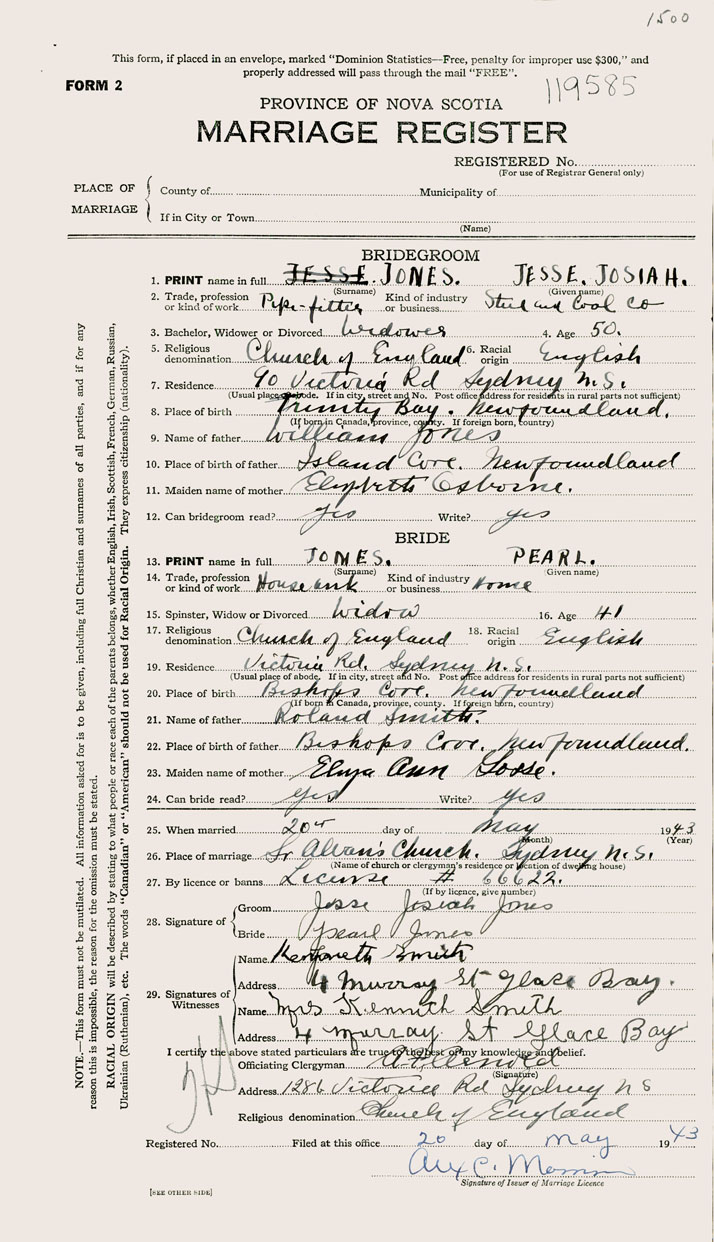 1500
This form, if placed in an envelope, marked "Dominion Statistics—Free, penalty for improper use $300," and
properly addressed will pass through the mail "FREE".
FORM 2
119585
PROVINCE OF NOVA SCOTIA
MARRIAGE REGISTER
REGISTERED No.
(For use of Registrar General only)
PLACE OF MARRIAGE
County of Municipality of
If in City or Town
(Name)
BRIDEGROOM
1. PRINT name in full JESSE. JONES. JESSE. JOSIAH.
(Surname) (Given name)
2. Trade, profession or kind of work Pipe-fitter Kind of industry or business Steel and Coal Co
3. Bachelor, Widower or Divorced Widower 4. Age 50.
5. Religious denomination Church of England 6. Racial origin English
7. Residence 90 Victoria Rd Sydney N.S.
(Usual place of abode. If in city, street and No. Post office address for residents in rural parts not sufficient)
8. Place of birth Trinity Bay. Newfoundland.
(If born in Canada, province, county. If foreign born, country)
9. Name of father William Jones
10. Place of birth of father Island Cove. Newfoundland
11. Maiden name of mother Elizabeth Osborne.
12. Can bridegroom read? yes Write? yes
BRIDE
13. PRINT name in full JONES. PEARL.
(Surname) (Given name)
14. Trade, profession or kind of work House work Kind of industry or business Home
15. Spinster, Widow or Divorced Widow 16. Age 41
17. Religious denomination Church of England 18. Racial origin English
19. Residence Victoria Rd. Sydney N.S.
(Usual place of abode. If in city, street and No. Post office address for residents in rural parts not sufficient)
20. Place of birth Bishops Cove. Newfoundland
(If born in Canada, province, county. If foreign born, country)
21. Name of father Roland Smith.
22. Place of birth of father Bishops Cove. Newfoundland.
23. Maiden name of mother Eliza Ann Goose.
24. Can bride read? yes Write? yes
25. When married 20th day of May 1943
(Month) (Year)
26. Place of marriage St Alban's Church. Sydney N.S.
(Name of church or clergyman's residence or location of dwelling house)
27. By licence or banns License # 66622.
(If by licence, give number)
28. Signature of
Groom Jesse Josiah Jones
Bride Pearl Jones
29. Signatures of Witnesses
Name Kenneth Smith
Address 4 Murray St Glace Bay.
Name Mrs Kenneth Smith
Address 4 Murray St Glace Bay
I certify the above stated particulars are true to the best of my knowledge and belief.
Officiating Clergyman
(Signature)
Address 1286 Victoria Rd Sydney N S
Religious denomination Church of England
Registered No. Filed at this office 20 day of May 1943
Signature of Issuer of Marriage Licence
[SEE OTHER SIDE]
NOTE.—This form must not be mutilated. All information asked for is to be given, including full Christian and surnames of all parties, and if for any
reason this is impossible, the reason for the omission must be stated.
RACIAL ORIGIN will be described by stating to what people or race each of the parents belongs, whether English, Irish, Scottish, French, German, Russian,
Ukrainian (Ruthenian), etc. The words "Canadian" or "American" should not be used for Racial Origin. They express citizenship (nationality).